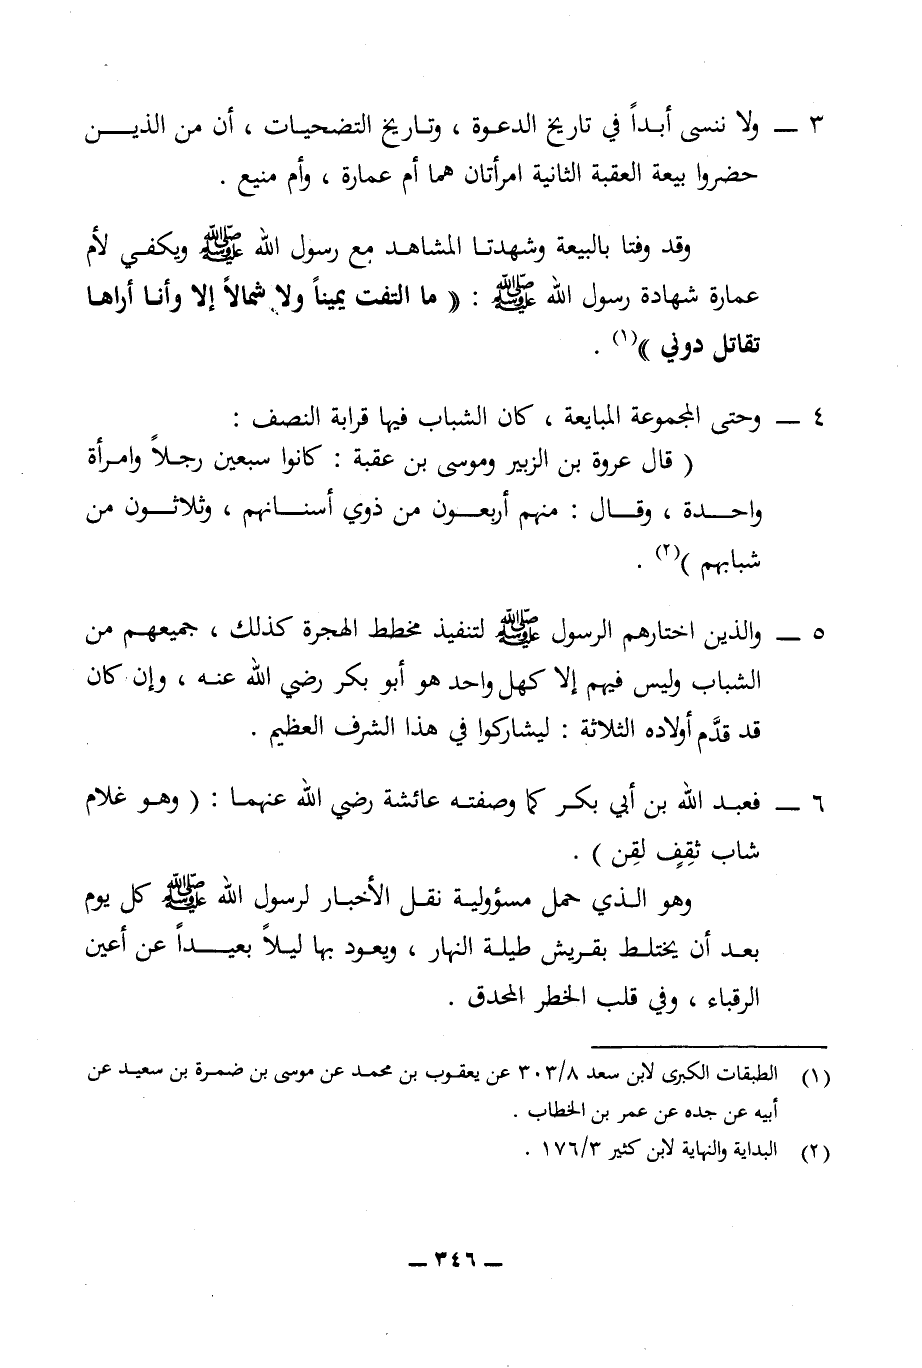 ٣ ــ ولا ننسى أبداً في تاريخ الدعوة ، وتاريخ التضحيات ، أن من الذيـــن
حضروا بيعة العقبة الثانية امرأتان هما أم عمارة ، وأم منيع .
وقد وفتا بالبيعة وشهدتـا المشاهـد مع رسول الله ﷺ ويكفـي لأم
عمارة شهادة رسول الله ﷺ : « ما التفت يميناً ولا شمالاً إلا وأنـا أراهـا
تقاتل دوني »(١) .
٤ ــ وحتى المجموعة المبايعة ، كان الشباب فيها قرابة النصف :
( قال عروة بن الزبير وموسى بن عقبة : كانوا سبعين رجـلاً وامـرأة
واحـــدة ، وقـــال : منهم أربعـــون من ذوي أسنـــانهم ، وثلاثـــون من
شبابهم )(٢) .
٥ ــ والذين اختارهم الرسول ﷺ لتنفيذ مخطط الهجرة كذلك ، جميعهـم من
الشباب وليس فيهم إلا كهل واحد هو أبو بكر رضي الله عنـه ، وإن كان
قد قدَّم أولاده الثلاثة : ليشاركوا في هذا الشرف العظيم .
٦ ــ فعبـد الله بن أبي بكـر كما وصفتـه عائشة رضي الله عنهمـا : ( وهـو غلام
شاب ثقِف لقِن ) .
وهو الـذي حمل مسؤوليـة نقـل الأخبـار لرسول الله ﷺ كل يوم
بعـد أن يختلـط بقـريش طيلـة النهار ، ويعـود بها ليـلاً بعيـــداً عن أعين
الرقباء ، وفي قلب الخطر المحدق .
(١) الطبقات الكبرى لابن سعد ٣٠٣/٨ عن يعقوب بن محمد عن موسى بن ضمـرة بن سعيـد عن
أبيه عن جده عن عمر بن الخطاب .
(٢) البداية والنهاية لابن كثير ١٧٦/٣ .
ــ ٣٤٦ ــ